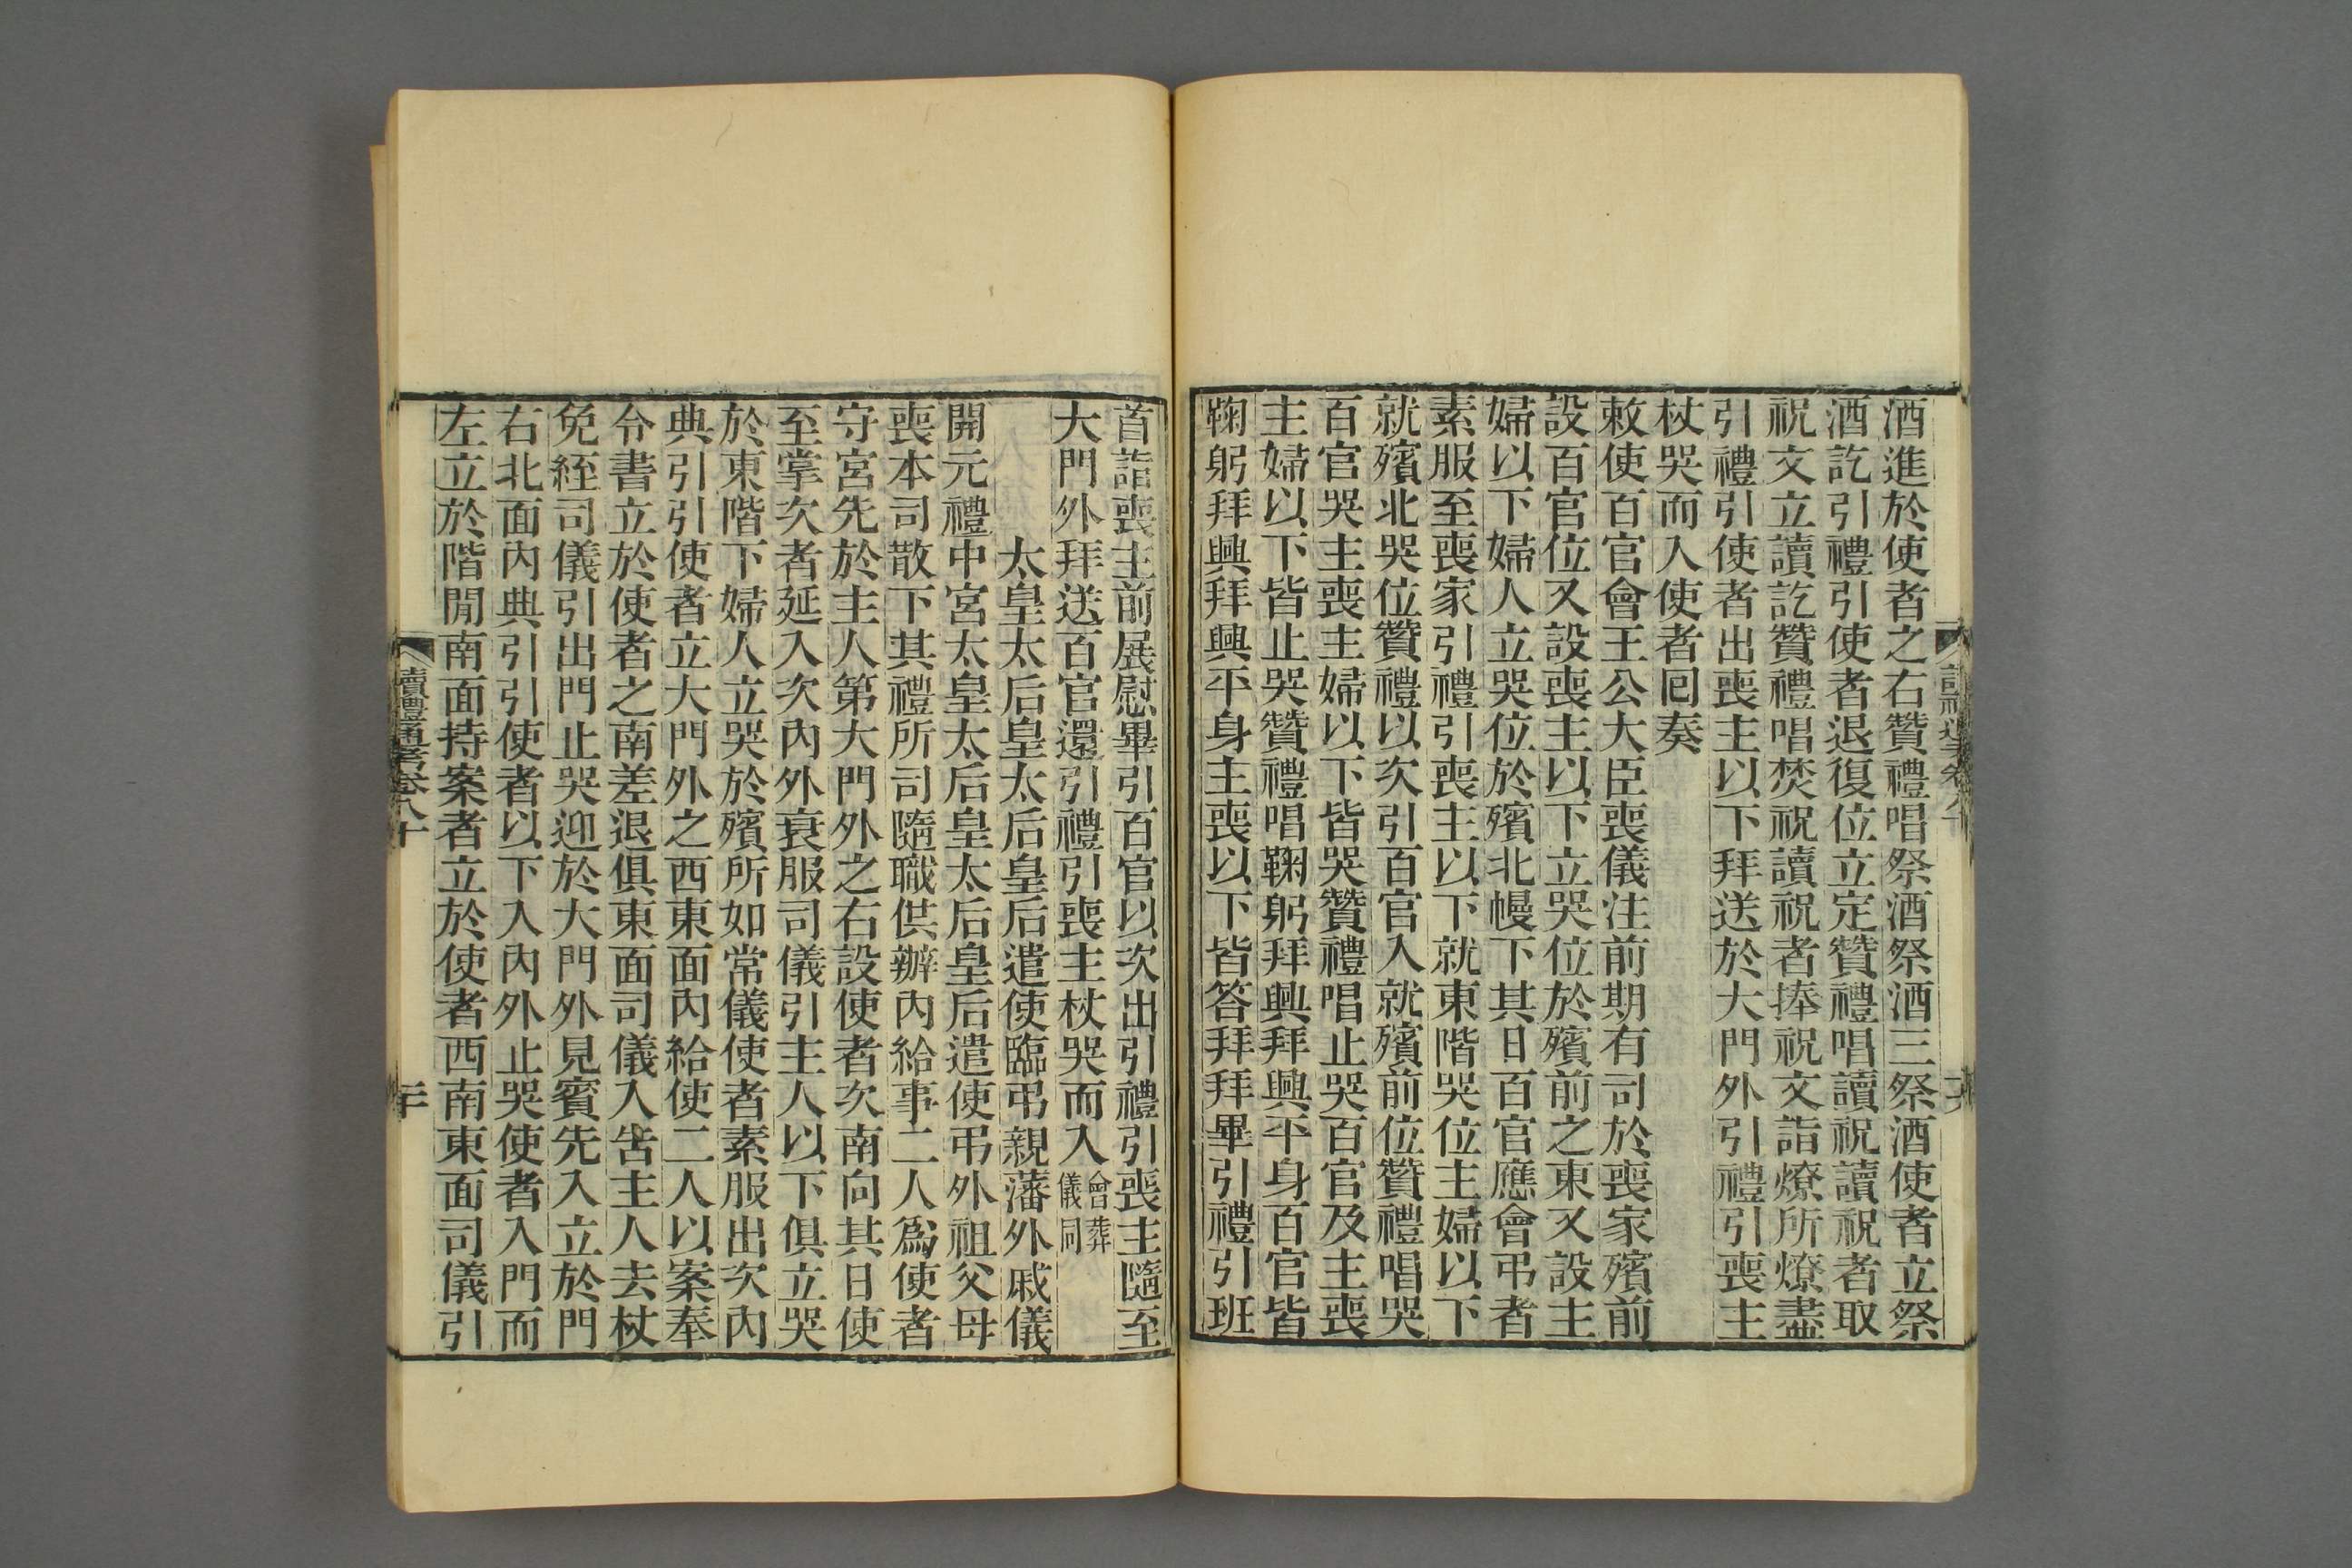 酒進於使者之右贊禮唱祭酒祭酒三祭酒使者立祭
酒訖引禮引使者退復位立定贊禮唱讀祝讀祝者取
祝文立讀訖贊禮唱焚祝讀祝者捧祝文詣燎所燎盡
引禮引使者出喪主以下拜送於大門外引禮引喪主
杖哭而入使者回奏
敕使百官會王公大臣喪儀注前期有司於喪家殯前
設百官位又設喪主以下立哭位於殯前之東又設主
婦以下婦人立哭位於殯北幔下其日百官應會弔者
素服至喪家引禮引喪主以下就東階哭位主婦以下
就殯北哭位贊禮以次引百官入就殯前位贊禮唱哭
百官哭主喪主婦以下皆哭贊禮唱止哭百官及主喪
主婦以下皆止哭贊禮唱鞠躬拜興拜興平身百官皆
鞠躬拜興拜興平身主喪以下皆答拜拜畢引禮引班
首詣喪主前展慰畢引百官以次出引禮引喪主隨至
大門外拜送百官還引禮引喪主杖哭而入會葬儀同
太皇太后皇太后皇后遣使臨弔親藩外戚儀
開元禮中宮太皇太后皇太后皇后遣使弔外祖父母
喪本司散下其禮所司隨職供辦內給事二人爲使者
守宮先於主人第大門外之右設使者次南向其日使
至掌次者延入次內外衰服司儀引主人以下俱立哭
於東階下婦人立哭於殯所如常儀使者素服出次內
典引引使者立大門外之西東面內給使二人以案奉
令書立於使者之南差退俱東面司儀入告主人去杖
免絰司儀引出門止哭迎於大門外見賓先入立於門
右北面內典引引使者以下入內外止哭使者入門而
左立於階間南面持案者立於使者西南東面司儀引
讀禮通考卷八十
二十